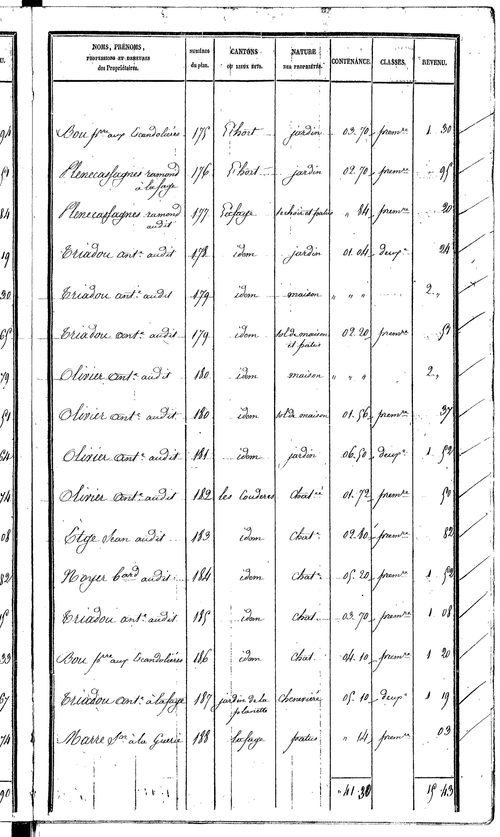 NOMS, PRÉNOMS, PROFESSIONS ET DEMEURES des Propriétaires. | NUMÉROS du plan. | CANTONS OU LIEUX DITS. | NATURE DES PROPRIÉTÉS. | CONTENANCE. | CLASSES. | REVENU.
175 jardin 03.70 premre 1 30
Plenecassagnes ramond à lafaye 176 jardin 02.70 premre 95
Plenecassagnes ramond audit 177 Lafaye „ 84 premre 20
Triadou ante audit 178 idem jardin 01.04 deuxe 24
Triadou ante audit 179 idem maison „ „ „ 2 „
Triadou ante audit 179 idem sol de maison et patus 02.20 premre 59
Olivier ante audit 180 idem maison „ „ „ 2 „
Olivier ante audit 180 idem sol de maison 01.56 premre 37
Olivier ante audit 181 idem jardin 06.50 deuxe 1 52
Olivier ante audit 182 les Couderes 01.72 premre 50
Jean audit 183 idem chate 02.80 premre 82
Noyer audit 184 idem chate 05.20 premre 1 52
Triadou ante audit 185 idem chat 03.70 premre 1 08
186 idem chat 04.10 premre 1 20
Triadou ante à lafaye 187 jardin de la planette Cheneviere 05.10 deuxe 1 19
Marre à la Guerie 188 lafaye patus „ 14 premre 03
„ 41.30 15 43